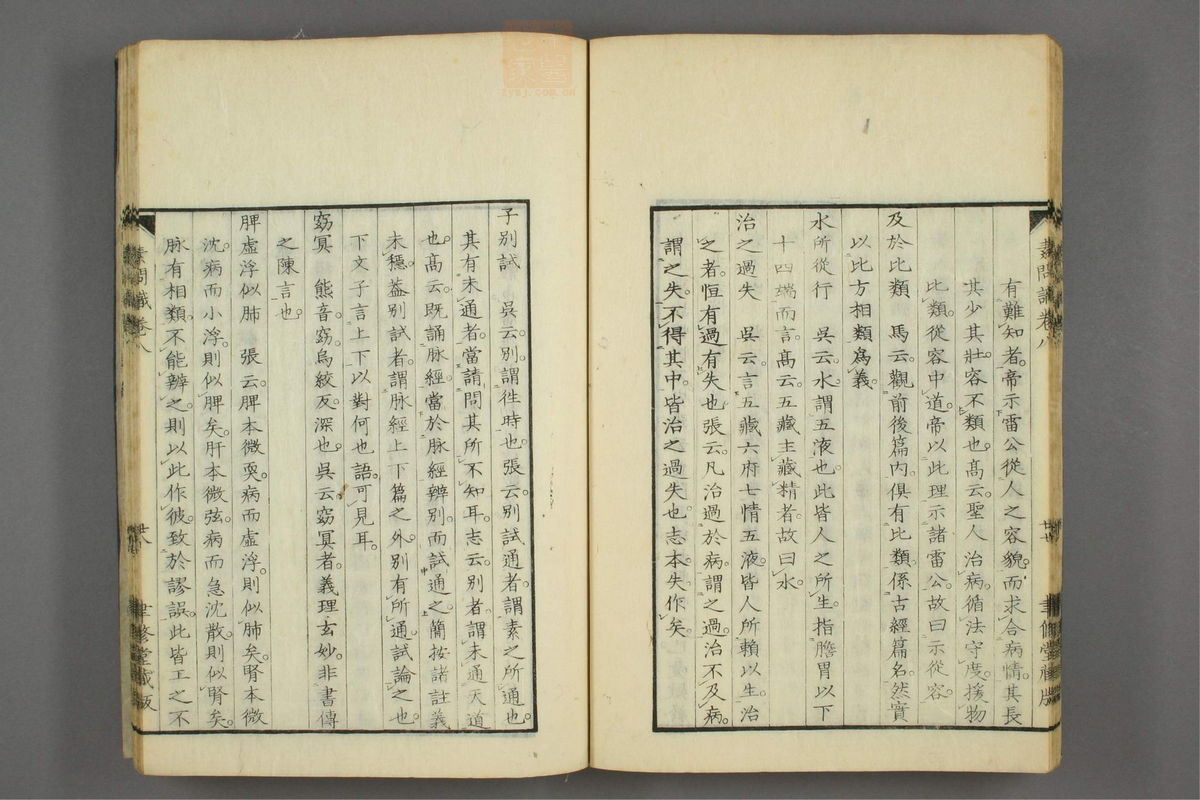 有難知者帝示雷公從人之容貌而求合病情其長
其少其壯容不類也高云聖人治病循法守度援物
比類從容中道帝以此理示諸雷公故曰示從容
及於比類 馬云觀前後篇内俱有比類係古經篇名然實
以比方相類爲義
水所從行 吳云水謂五液也此皆人之所生指膽胃以下
十四端而言高云五藏主藏精者故曰水
治之過失 吳云言五藏六府七情五液皆人所賴以生治
之者恒有過有失也張云凡治過於病謂之過治不及病
謂之失不得其中皆治之過失也志本失作矣
素問識卷八
聿修堂藏版
子別試 吳云別謂徃時也張云別試通者謂素之所通也
其有未通者當請問其所不知耳志云別者謂未通天道
也高云既誦脉經當於脉經辨別而試通之簡按諸註義
未穩葢別試者謂脉經上下篇之外別有所通試論之也
下文子言上下以對何也語可見耳
窈冥 熊音窈烏絞反深也吳云窈冥者義理玄妙非書傳
之陳言也
脾虛浮似肺 張云脾本微耎病而虛浮則似肺矣腎本微
沈病而小浮則似脾矣肝本微弦病而急沈散則似腎矣
脉有相類不能辨之則以此作彼致於謬誤此皆工之不
素問識 卷八
聿修堂藏版
zysj.com.cn